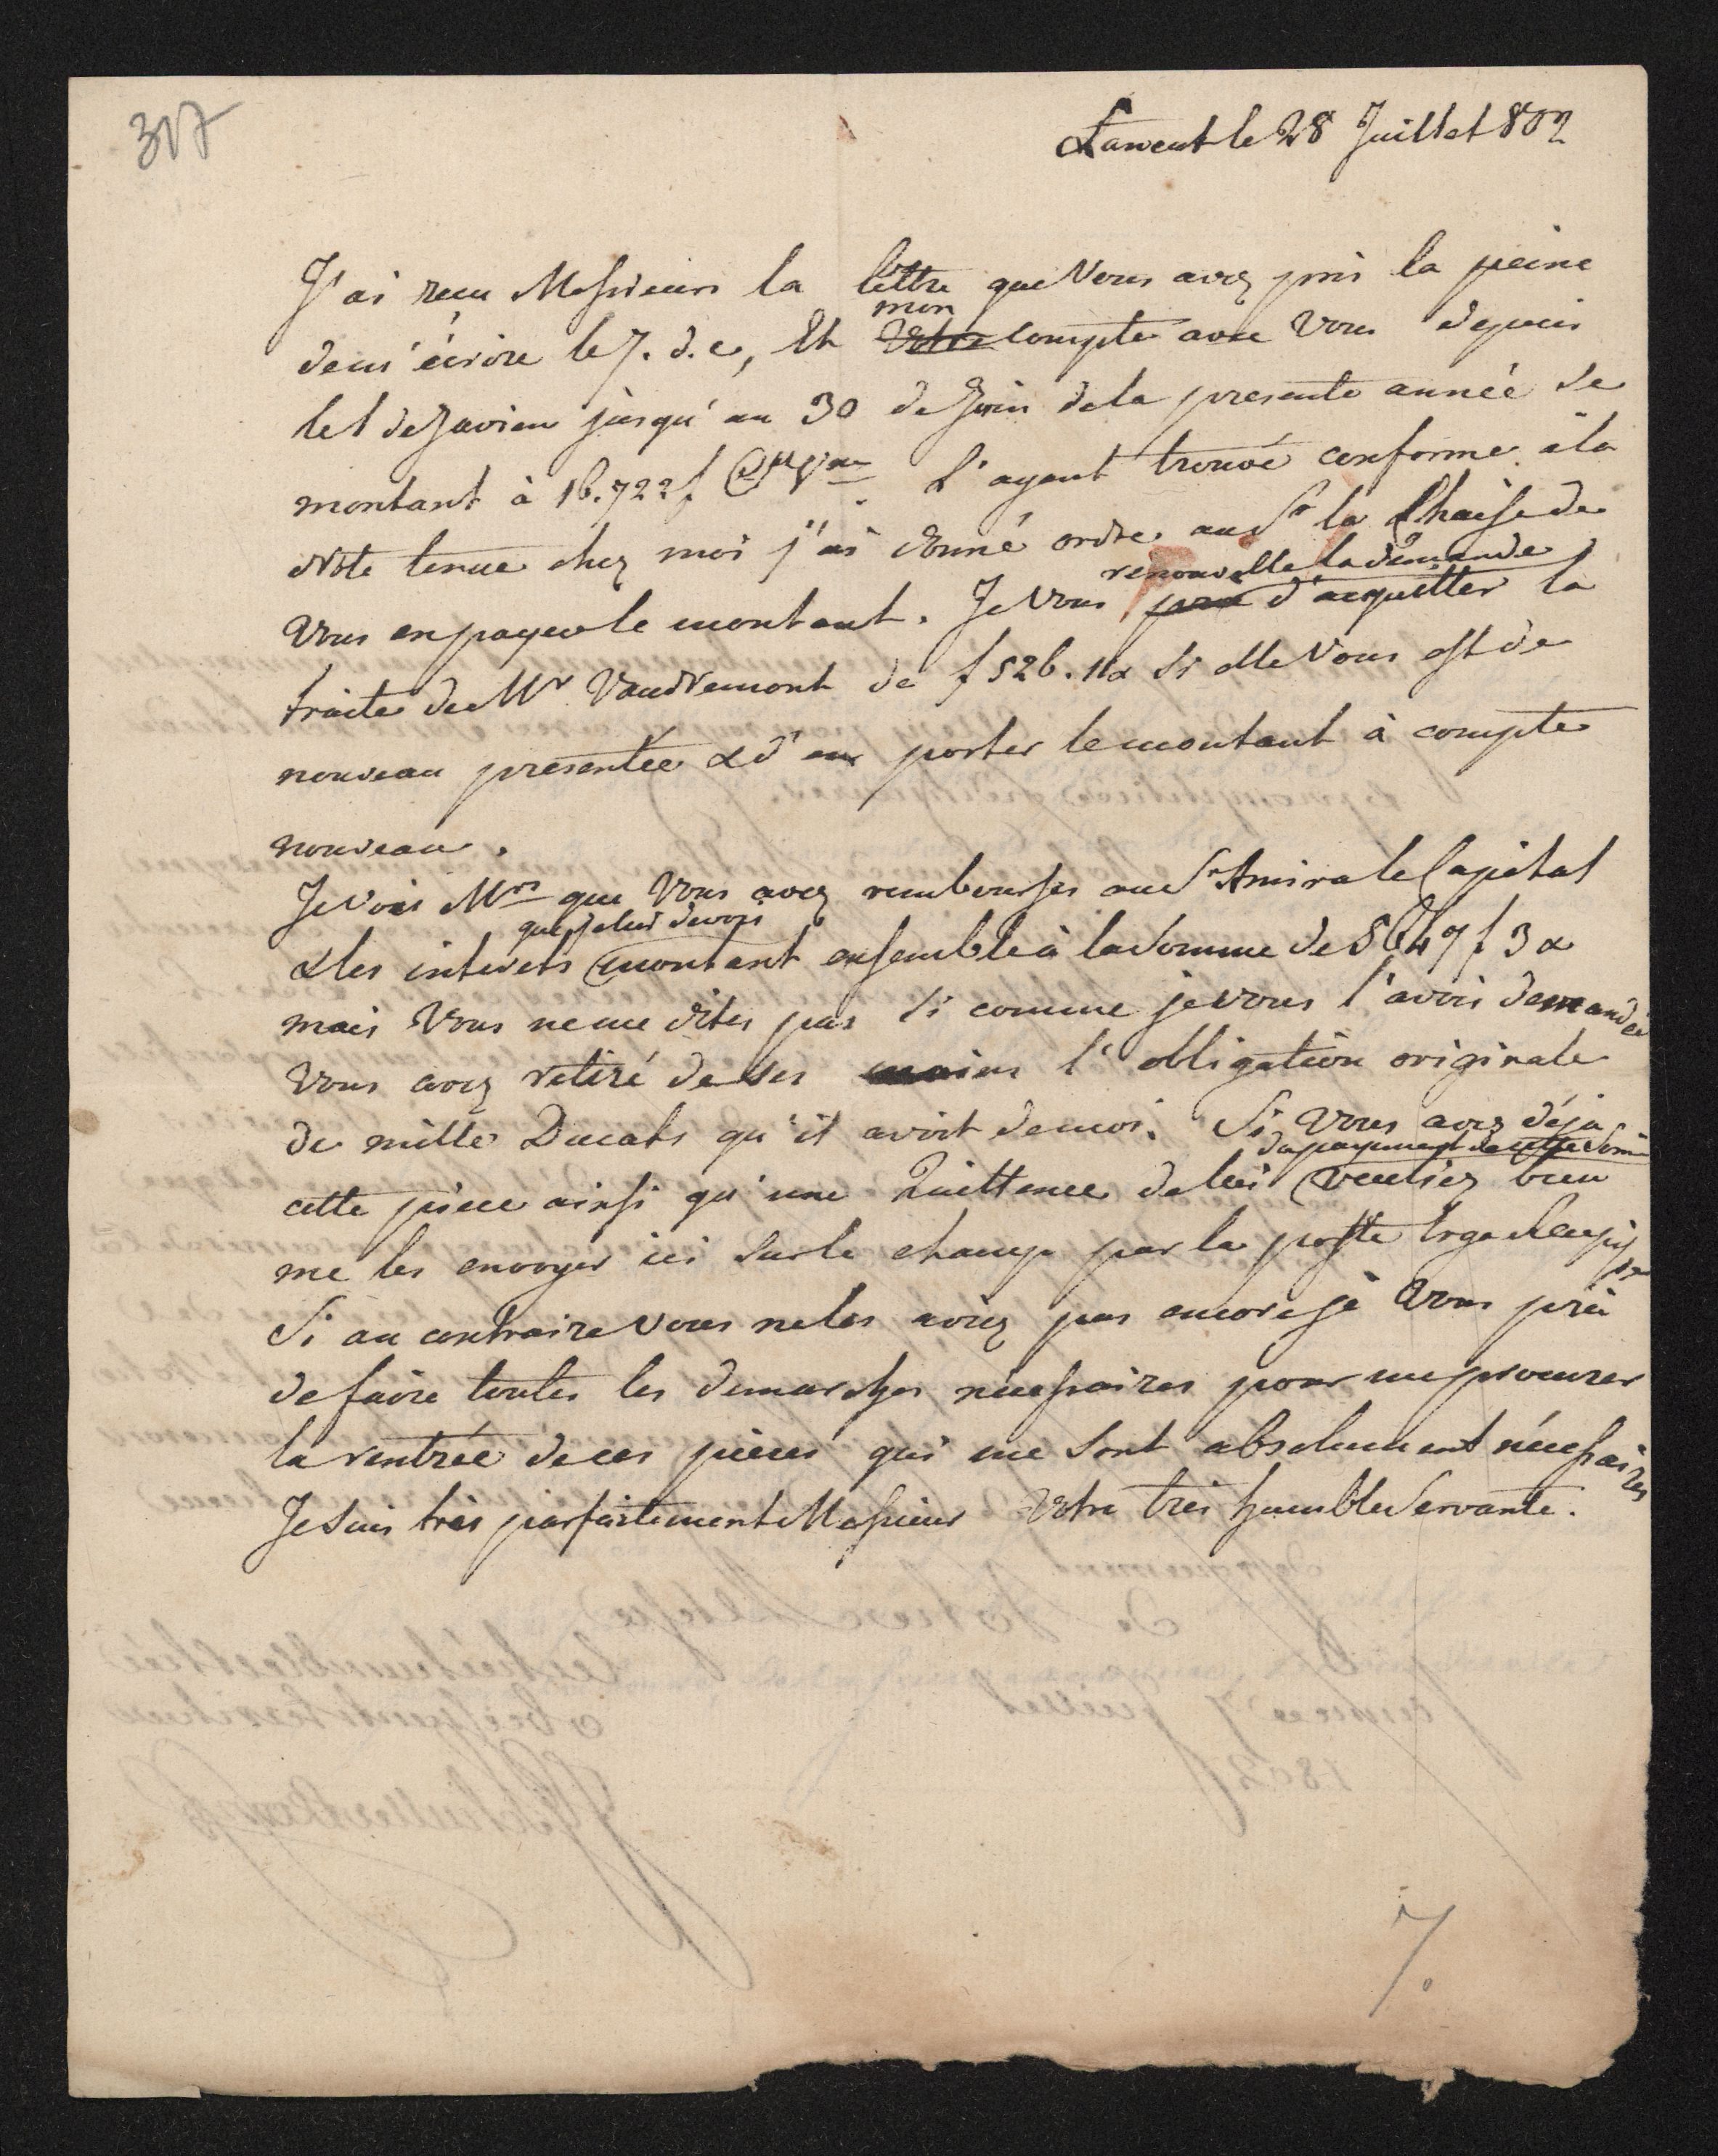 317
Lancut le 28 Juillet 802
J'ai recu Messieurs la lettre que Vous avez pris la peine
de m'écrire le 7. d. c, Et mon Votre compte avec Vous depuis
le 1 de Janvier jusqu'au 30 de Juin de la presente année se
montant à 16.722 f L'ayant trouvé conforme à la
Note tenue chez moi j'ai donné ordre au Sr la Chaise de
Vous en payer le montant. Je Vous prie renouvelle la demande d'acquitter la
traite de Mr Vaudremont de f 526. 11 x si elle Vous est de
nouveau presentée & d'en porter le montant à compte
nouveau.
Je vois Mrs que Vous avez rembourser au Sr Amira le Capital
& les interets que je lui devois montant ensemble à la somme de 5647 f 3 x
mais Vous ne me dites pas si comme je vous l'avois demandée
Vous avez retiré de ses mains l'obligation originale
de mille Ducats qu'il avoit de moi. Si Vous avez déja
cette piece ainsi qu'une Quittence de lui du payement de cette veuliez bien
me les envoyer ici sur le champ par la poste
Si au contraire vous ne les aviez pas encore je Vous prie
de faire toutes les demarches nécessaires pour me procurer
la rentrée de ces pieces qui me sont absolument nécessaires
Je suis très parfaitement Messieurs Votre très humble Servante.
7.